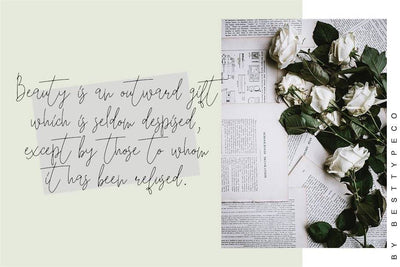 Beauty is an outward gift
which is seldom despised,
except by those to whom
it has been refused.
BY BESTTYPECO